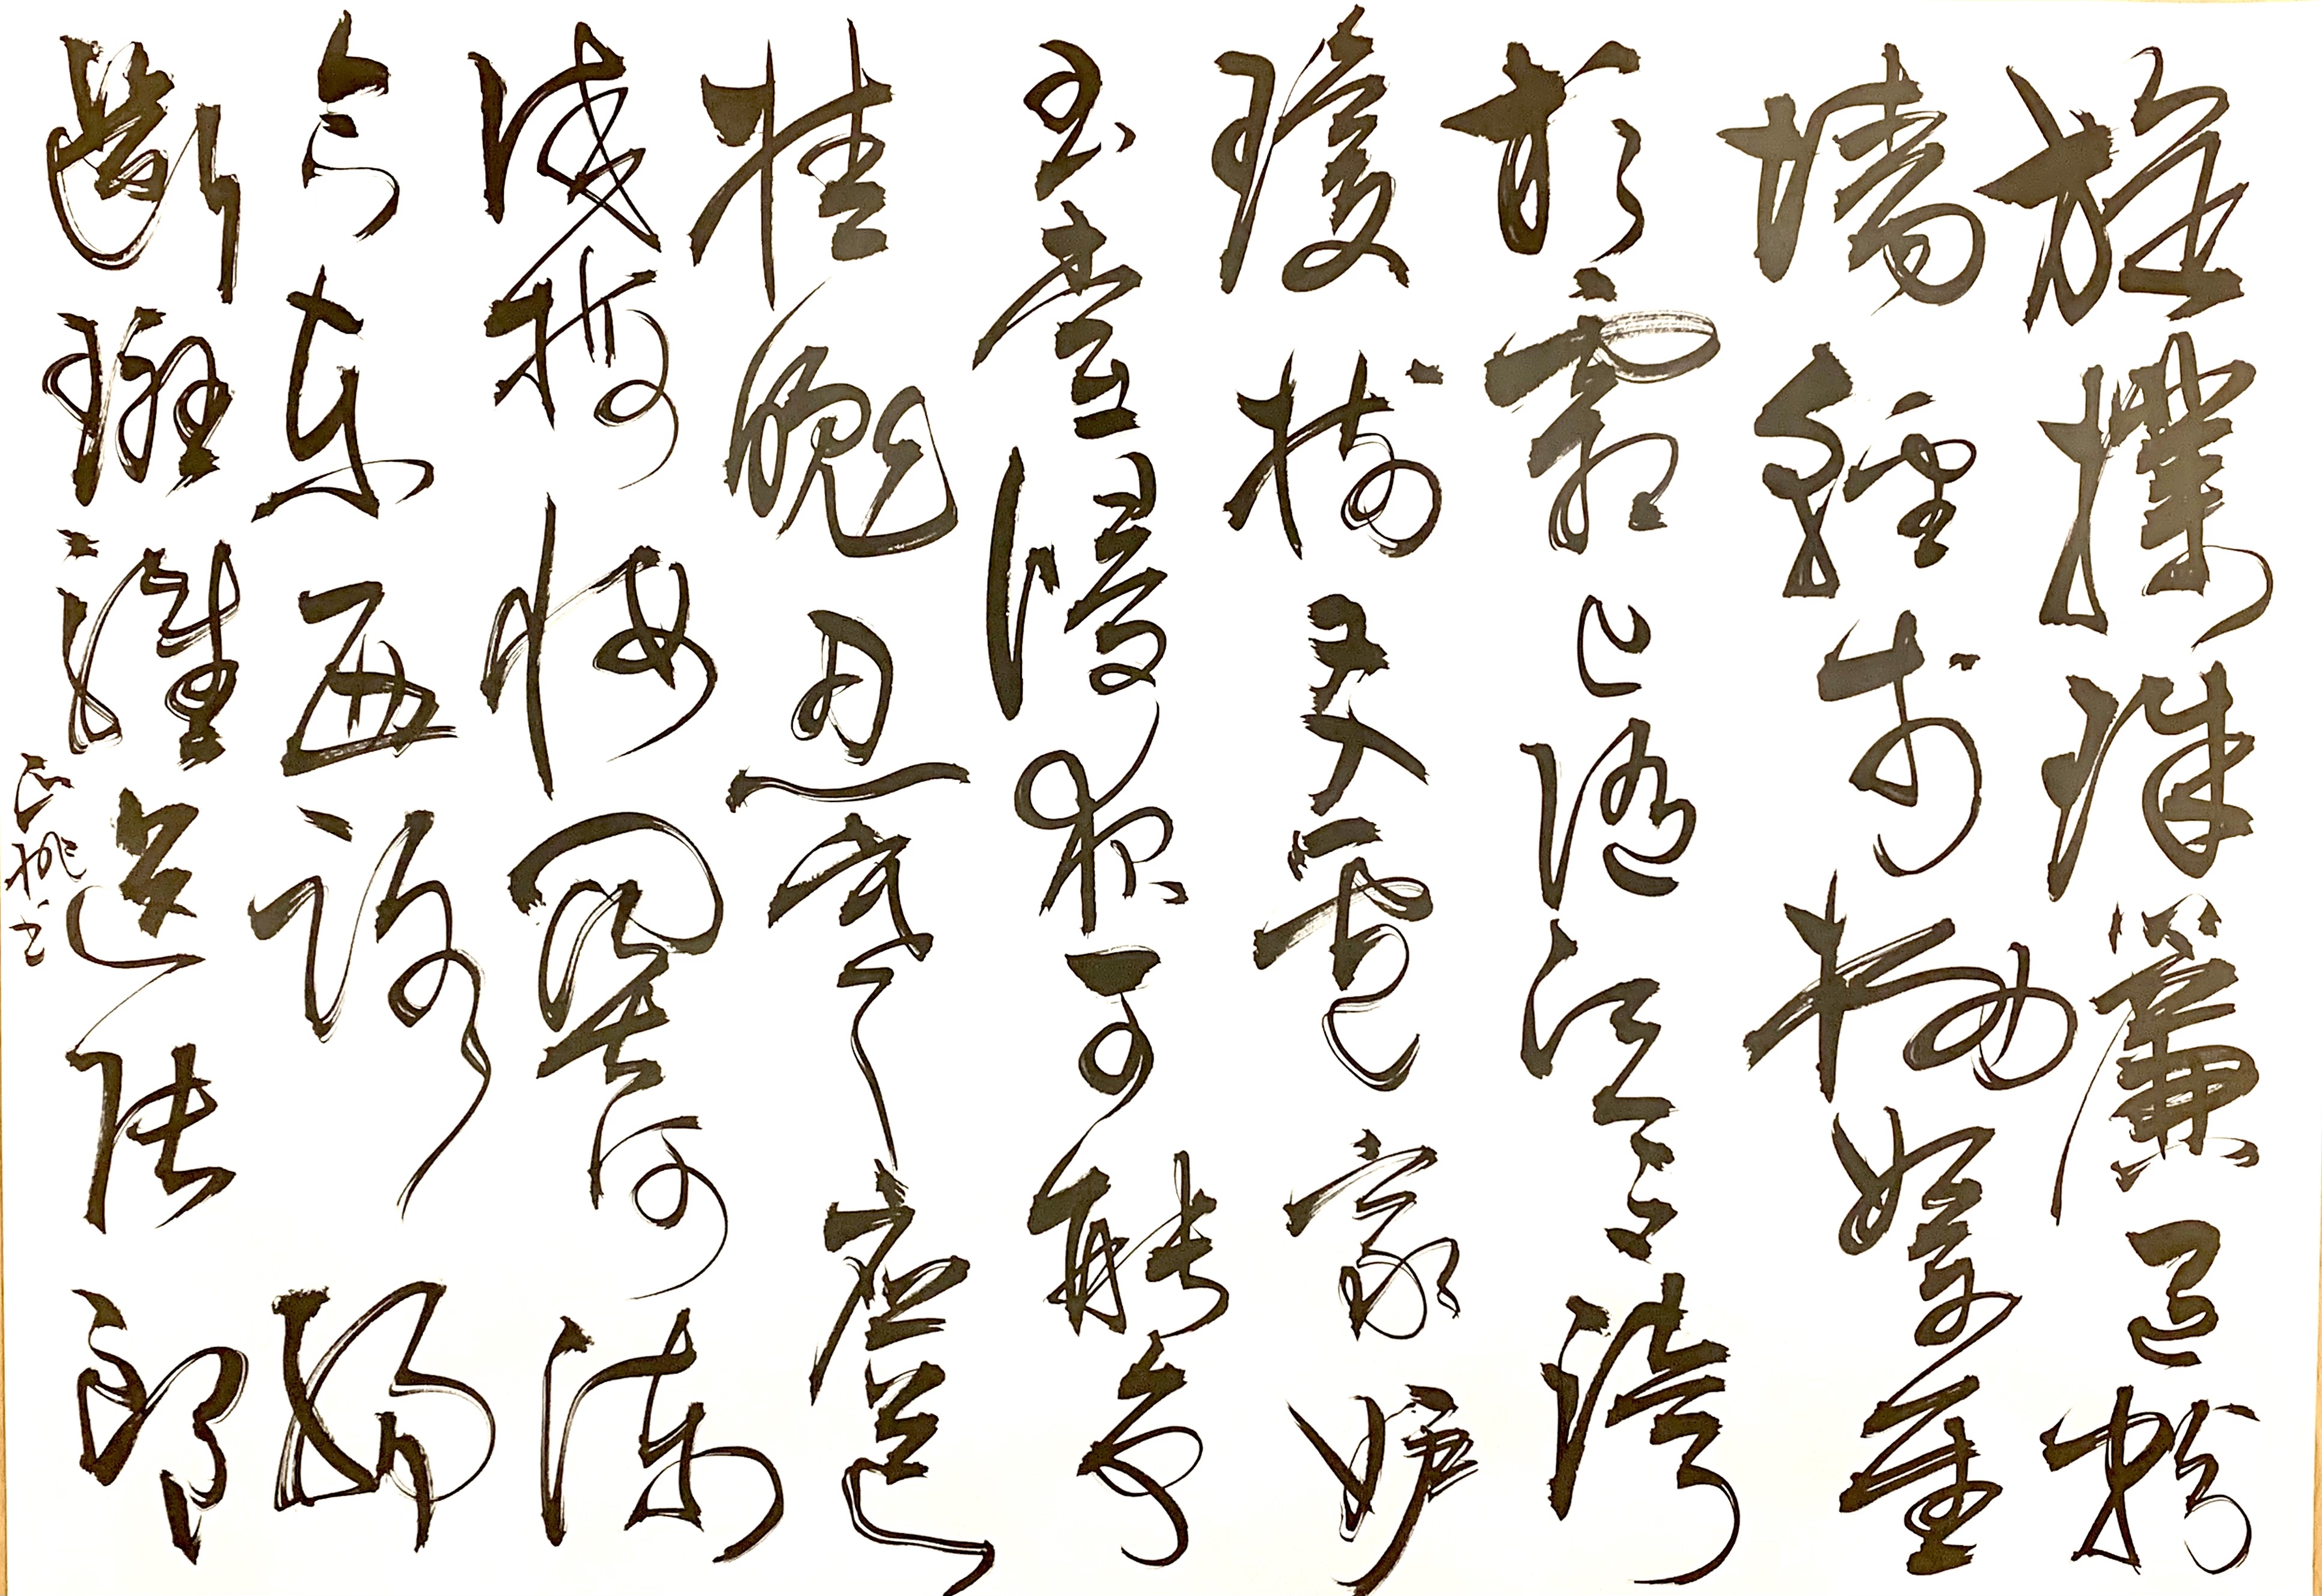 旋撲珠簾過粉
牆輕於柳絮重
於霜已隨江令誇
瓊樹又入盧家妒
玉堂侵夜可能爭
桂魄忍寒應
試梅妝關河凍
合東西路腸
斷斑騅送陸郎